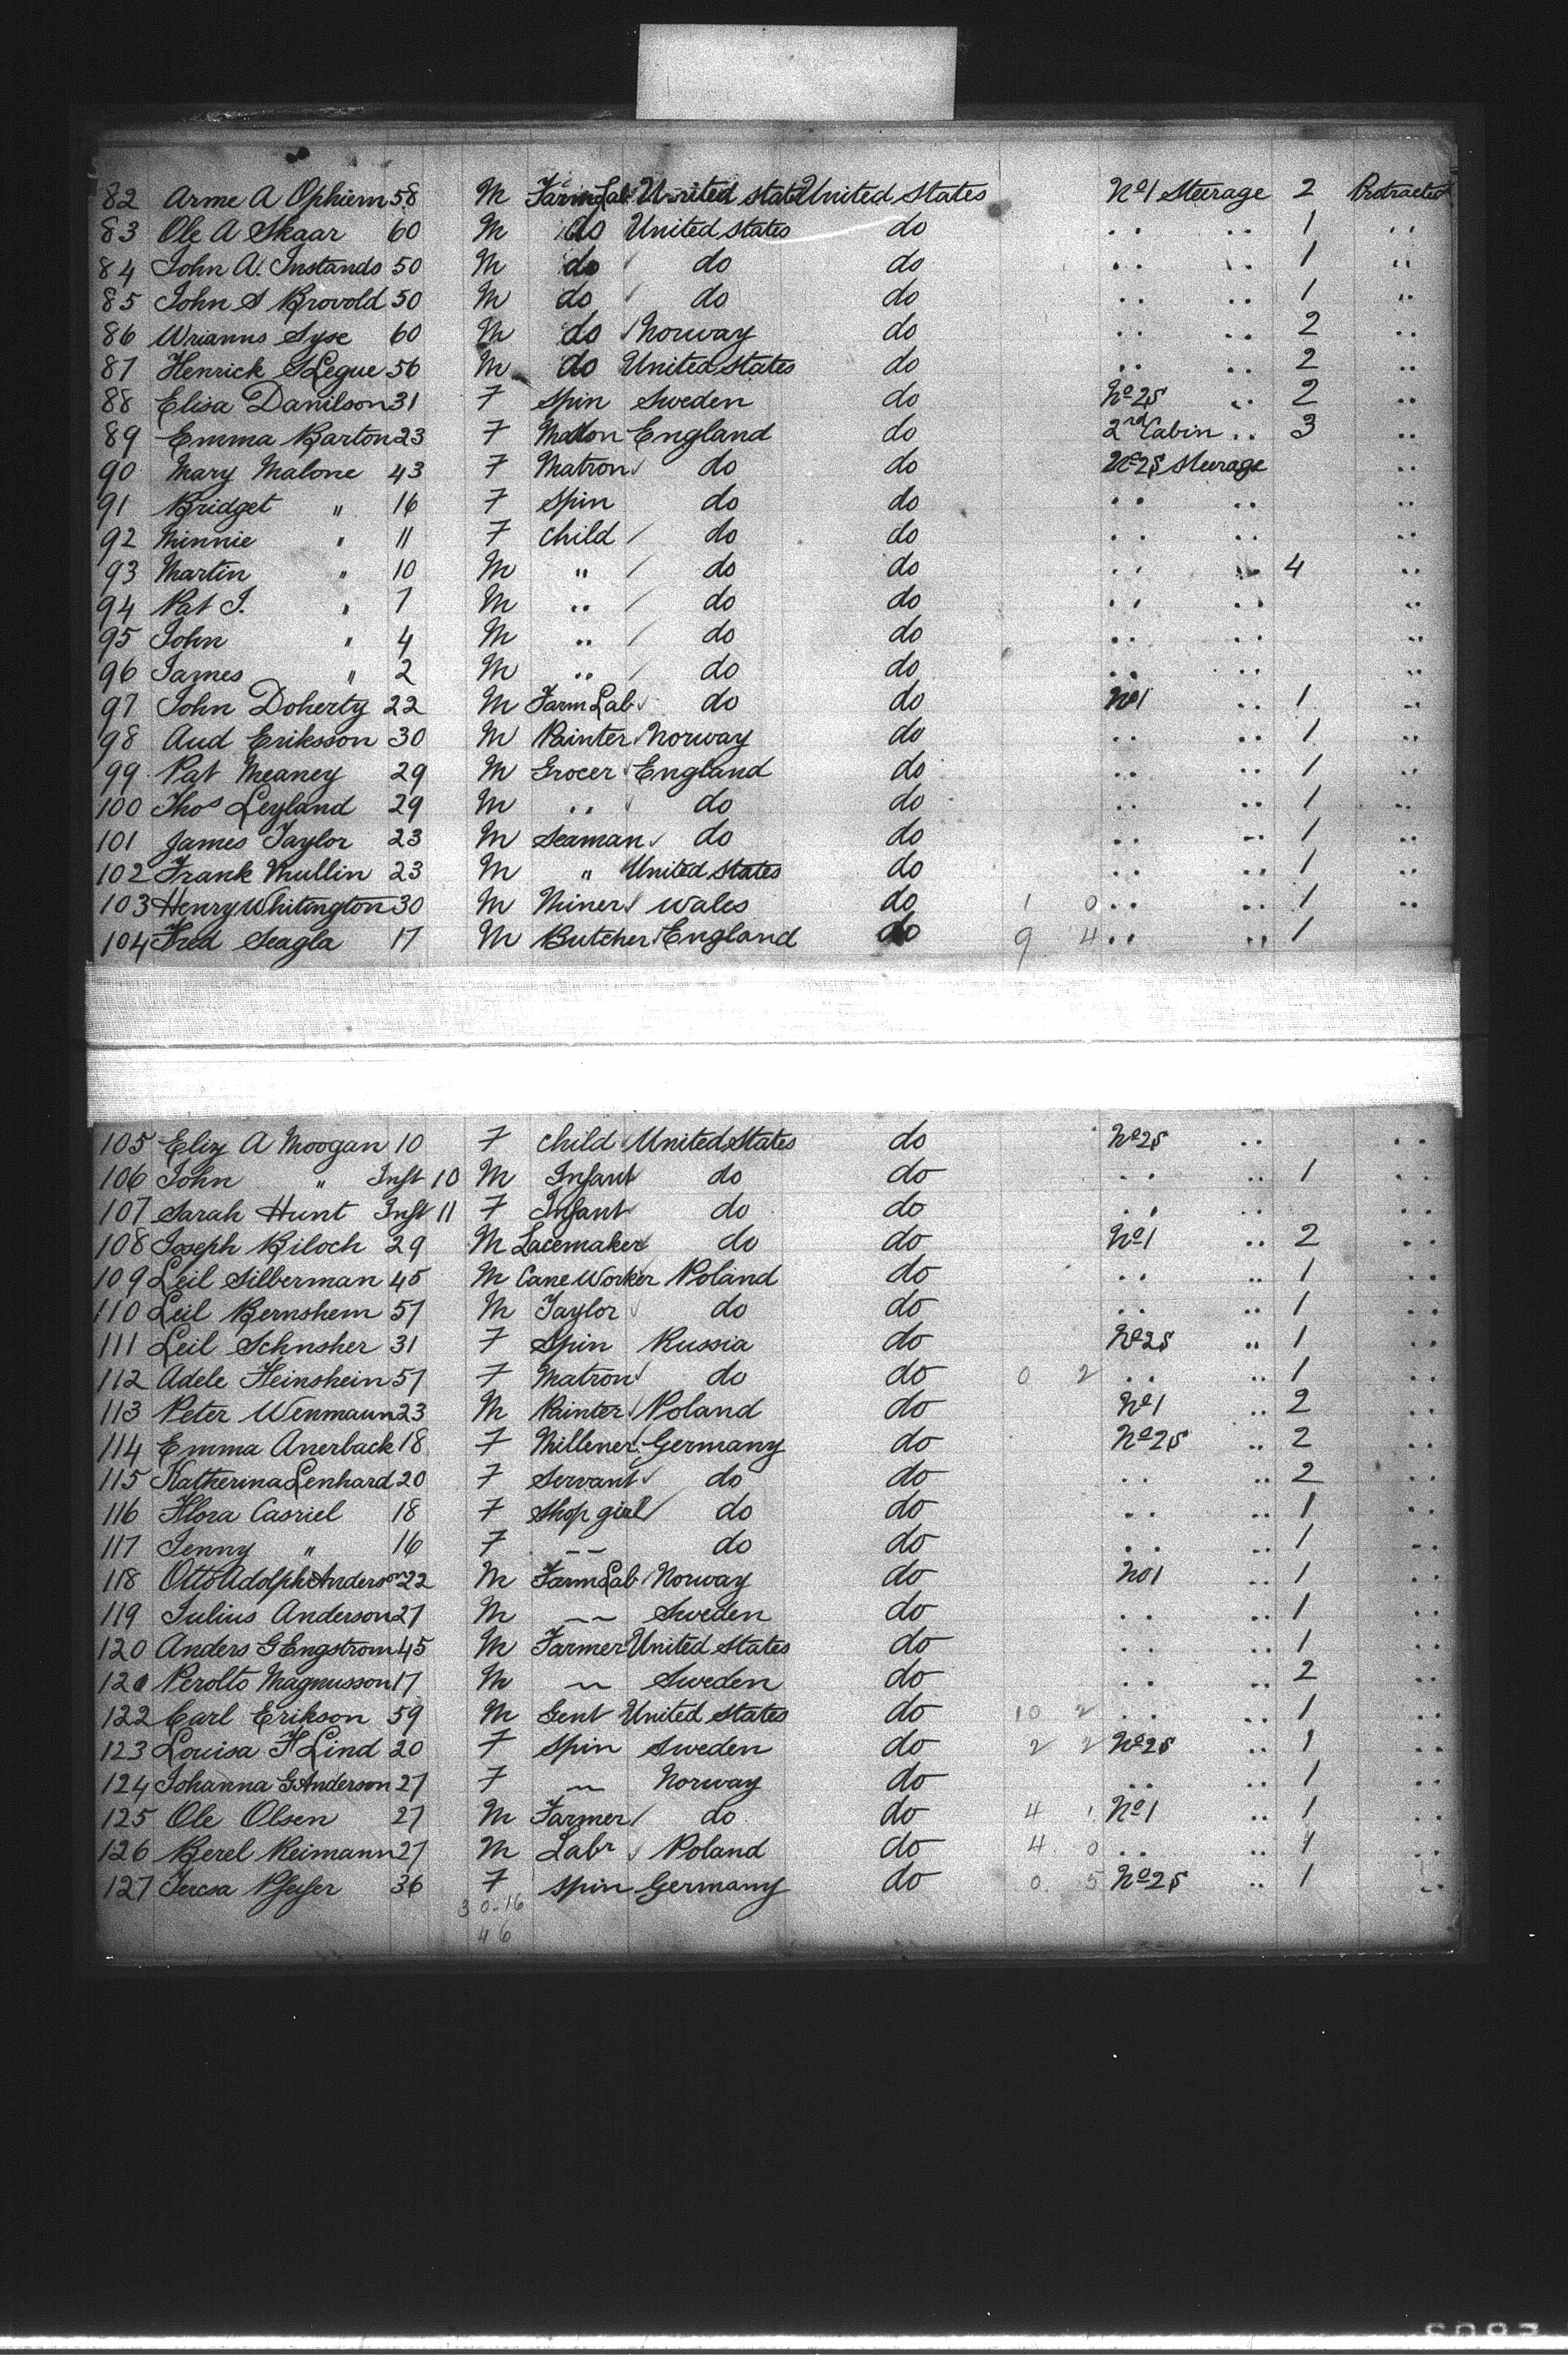 82 Arme A Ophiem 58 M Farm Lab United States United States No 1 Steerage 2 Protracted
83 Ole A Skaar 60 M do United States do .. .. 1 ..
84 John A. Instands 50 M do do do .. .. 1 ..
85 John S Brovold 50 M do do do .. .. 1 ..
86 Wrianns Syse 60 M do Norway do .. .. 2 ..
87 Henrick S Legue 56 M do United States do .. .. 2 ..
88 Elisa Danilson 31 F Spin Sweden do No 2S .. 2 ..
89 Emma Barton 23 F Matron England do 2nd Cabin .. 3 ..
90 Mary Malone 43 F Matron do do No 2S Steerage ..
91 Bridget " 16 F Spin do do .. .. ..
92 Minnie " 11 F Child do do .. .. ..
93 Martin " 10 M " do do .. .. 4 ..
94 Pat J. " 7 M .. do do .. .. ..
95 John " 4 M .. do do .. .. ..
96 James " 2 M .. do do .. .. ..
97 John Doherty 22 M Farm Lab do do No 1 .. 1 ..
98 Aud Eriksson 30 M Painter Norway do .. .. 1 ..
99 Pat Meaney 29 M Grocer England do .. .. 1 ..
100 Thos Leyland 29 M .. do do .. .. 1 ..
101 James Taylor 23 M Seaman do do .. .. 1 ..
102 Frank Mullin 23 M " United States do .. .. 1 ..
103 Henry Whitington 30 M Miner Wales do 1 0 .. .. 1 ..
104 Fred Seagla 17 M Butcher England do 9 4 .. .. 1
105 Eliz A Moogan 10 F Child United States do No 2S .. ..
106 John " Inft 10 M Infant do do .. .. 1 ..
107 Sarah Hunt Inft 11 F Infant do do .. .. ..
108 Joseph Biloch 29 M Lacemaker do do No 1 .. 2 ..
109 Leil Silberman 45 M Cane Worker Poland do .. .. 1 ..
110 Leil Bernshem 51 M Taylor do do .. .. 1 ..
111 Leil Schnsher 31 F Spin Russia do No 2S .. 1 ..
112 Adele Heinshein 51 F Matron do do 0 2 .. .. 1 ..
113 Peter Wenmaun 23 M Painter Poland do No 1 .. 2 ..
114 Emma Anerback 18 F Millener Germany do No 2S .. 2 ..
115 Katherina Lenhard 20 F Servant do do .. .. 2 ..
116 Flora Casriel 18 F Shop girl do do .. .. 1 ..
117 Jenny " 16 F -- do do .. .. 1 ..
118 Otto Adolph Anderson 22 M Farm Lab Norway do No 1 .. 1 ..
119 Julius Anderson 27 M -- Sweden do .. .. 1 ..
120 Anders G Engstrom 45 M Farmer United States do .. .. 1 ..
121 Perolto Magnusson 17 M -- Sweden do .. .. 2 ..
122 Carl Erikson 59 M Gent United States do 10 2 .. .. 1 ..
123 Louisa H Lind 20 F Spin Sweden do 2 2 No 2S .. 1 ..
124 Johanna G Anderson 27 F -- Norway do .. .. 1 ..
125 Ole Olsen 27 M Farmer do do 4 1 No 1 .. 1 ..
126 Berel Reimann 27 M Labr Poland do 4 0 .. .. 1 ..
127 Teresa Pfeifer 36 F Spin Germany do 0 5 No 2S .. 1 ..
30-16
46